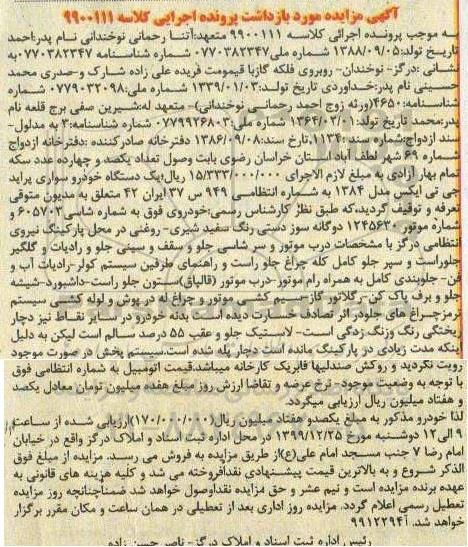 آگهی مزایده مورد بازداشت پرونده اجرایی کلاسه ۹۹۰۰۱۱۱
به موجب پرونده اجرائی کلاسه ۹۹۰۰۱۱۱ متعهد:آتنا رحمانی نوخندانی نام پدر:احمد
تاریخ تولد:۱۳۸۸/۰۹/۰۵ شماره ملی:۰۷۷۰۳۸۲۳۴۷ شماره شناسنامه ۰۷۷۰۳۸۲۳۴۷به
نشانی :درگز- نوخندان- روبروی فلکه گازبا قیمومت فریده علی زاده شارک و-صدری محمد
حسینی نام پدر:خدآوردی تاریخ تولد:۱۳۳۹/۰۱/۰۳ شماره ملی:۰۷۷۹۰۳۲۰۹۸ شماره
شناسنامه:۴۶۵۰(ورثه زوج احمد رحمانی نوخندانی)- متعهد له:شیرین صفی برج قلعه نام
پدر:محمد تاریخ تولد:۱۳۶۴/۰۳/۰۱ شماره ملی:۰۷۷۹۹۲۶۸۰۳ شماره شناسنامه:۳ به مدلول -
سند ازدواج:شماره سند :۱۱۳۴،تارخ سند:۱۳۸۶/۰۹/۰۸ دفترخانه صادرکننده :دفترخانه ازدواج
شماره ۶۹ شهر لطف آباد استان خراسان رضوی بابت وصول تعداد یکصد و چهارده عدد سکه
تمام بهار آزادی به مبلغ لازم الاجرای ۱۵/۳۳۳/۰۰۰/۰۰۰ ریال؛یک دستگاه خودرو سواری پراید
جی تی ایکس مدل ۱۳۸۴ به شماره انتظامی ۹۴۹ س ۳۷ ایران ۴۲ متعلق به مدیون متوفی
تعرفه و توقیف گردید،که طبق نظر کارشناس رسمی:خودروی فوق به شماره شاسی۶۰۵۷۰۳ و
شماره موتور ۱۲۴۵۶۳۰ دوگانه سوز دستی رنگ سفید شیری- روغنی در محل پارکینگ نیروی
انتظامی درگز با مشخصات درب موتور و سر شاسی جلو و سقف و سینی جلو و رادیات و گلگیر
جلوراست و سپر جلو کامل کله چراغ جلو راست و راهنمای طرفین سیستم کولر-رادیات آب و
فن- جلوبندی کامل به همراه رام موتور-درب موتور (قالپاق)ستون جلو راست-داشبورد-شیشه
جلو و برف پاک کن-رگلاتور گاز-سیم کشی موتور و چراغ له در پوش و لوله کشی سیستم
ترمزچراغ های جلودر اثر تصادف خسارت دیده است بدنه خودرو در سایر نقاط نیز دچار
ریختگی رنگ وزنگ زدگی است- لاستیک جلو و عقب ۵۵ درصد سالم است لیکن به دلیل
اینکه مدت زیادی در پارکینگ مانده است دچار پله شده است.سیستم پخش در صورت موجود
رویت نگردید و روکش صندلیها فابریک کارخانه میباشد.قیمت اتومبیل به شماره انتظامی فوق
با توجه به وضعیت موجود- نرخ عرضه و تقاضا ارزش روز مبلغ هفده میلیون تومان معادل یکصد
و هفتاد میلیون ریال ارزیابی میگردد.
لذا خودرو مذکور به مبلغ یکصدو هفتاد میلیون ریال(۱۷۰/۰۰۰/۰۰۰)ارزیابی شده از ساعت
۹ الی۱۲ دوشنبه مورخ ۱۳۹۹/۱۲/۲۵ در محل اداره ثبت اسناد و املاک درگز واقع در خیابان
امام رضا ۷ جنب مسجد امام علی(ع)از طریق مزایده به فروش می رسد. مزایده از مبلغ فوق
الذکر شروع و به بالاترین قیمت پیشنهادی نقدافروخته می شد و کلیه هزینه های قانونی به
عهده برنده مزایده است و نیم عشر و حق مزایده نقداوصول خواهد شد ضمناًچنانچه روز مزایده
تعطیل رسمی اعلام گردد. مزایده روز اداری بعد از تعطیلی در همان ساعت و مکان مقرر برگزار
خواهد شد. آ۹۹۱۲۲۹۴
رئیس اداره ثبت اسناد و املاک درگز- ناصر حسن زاده